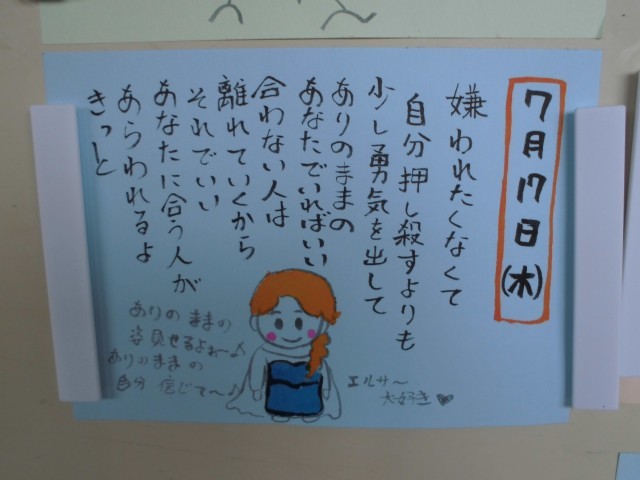 7月17日(木)
嫌われたくなくて
自分押し殺すよりも
少し勇気を出して
ありのままの
あなたでいればいい
合わない人は
離れていくから
それでいい
あなたに合う人が
あらわれるよ
きっと
ありのままの
姿見せるよぉ〜♪
ありのままの
自分信じて〜♪
エルサ〜
大好き♥